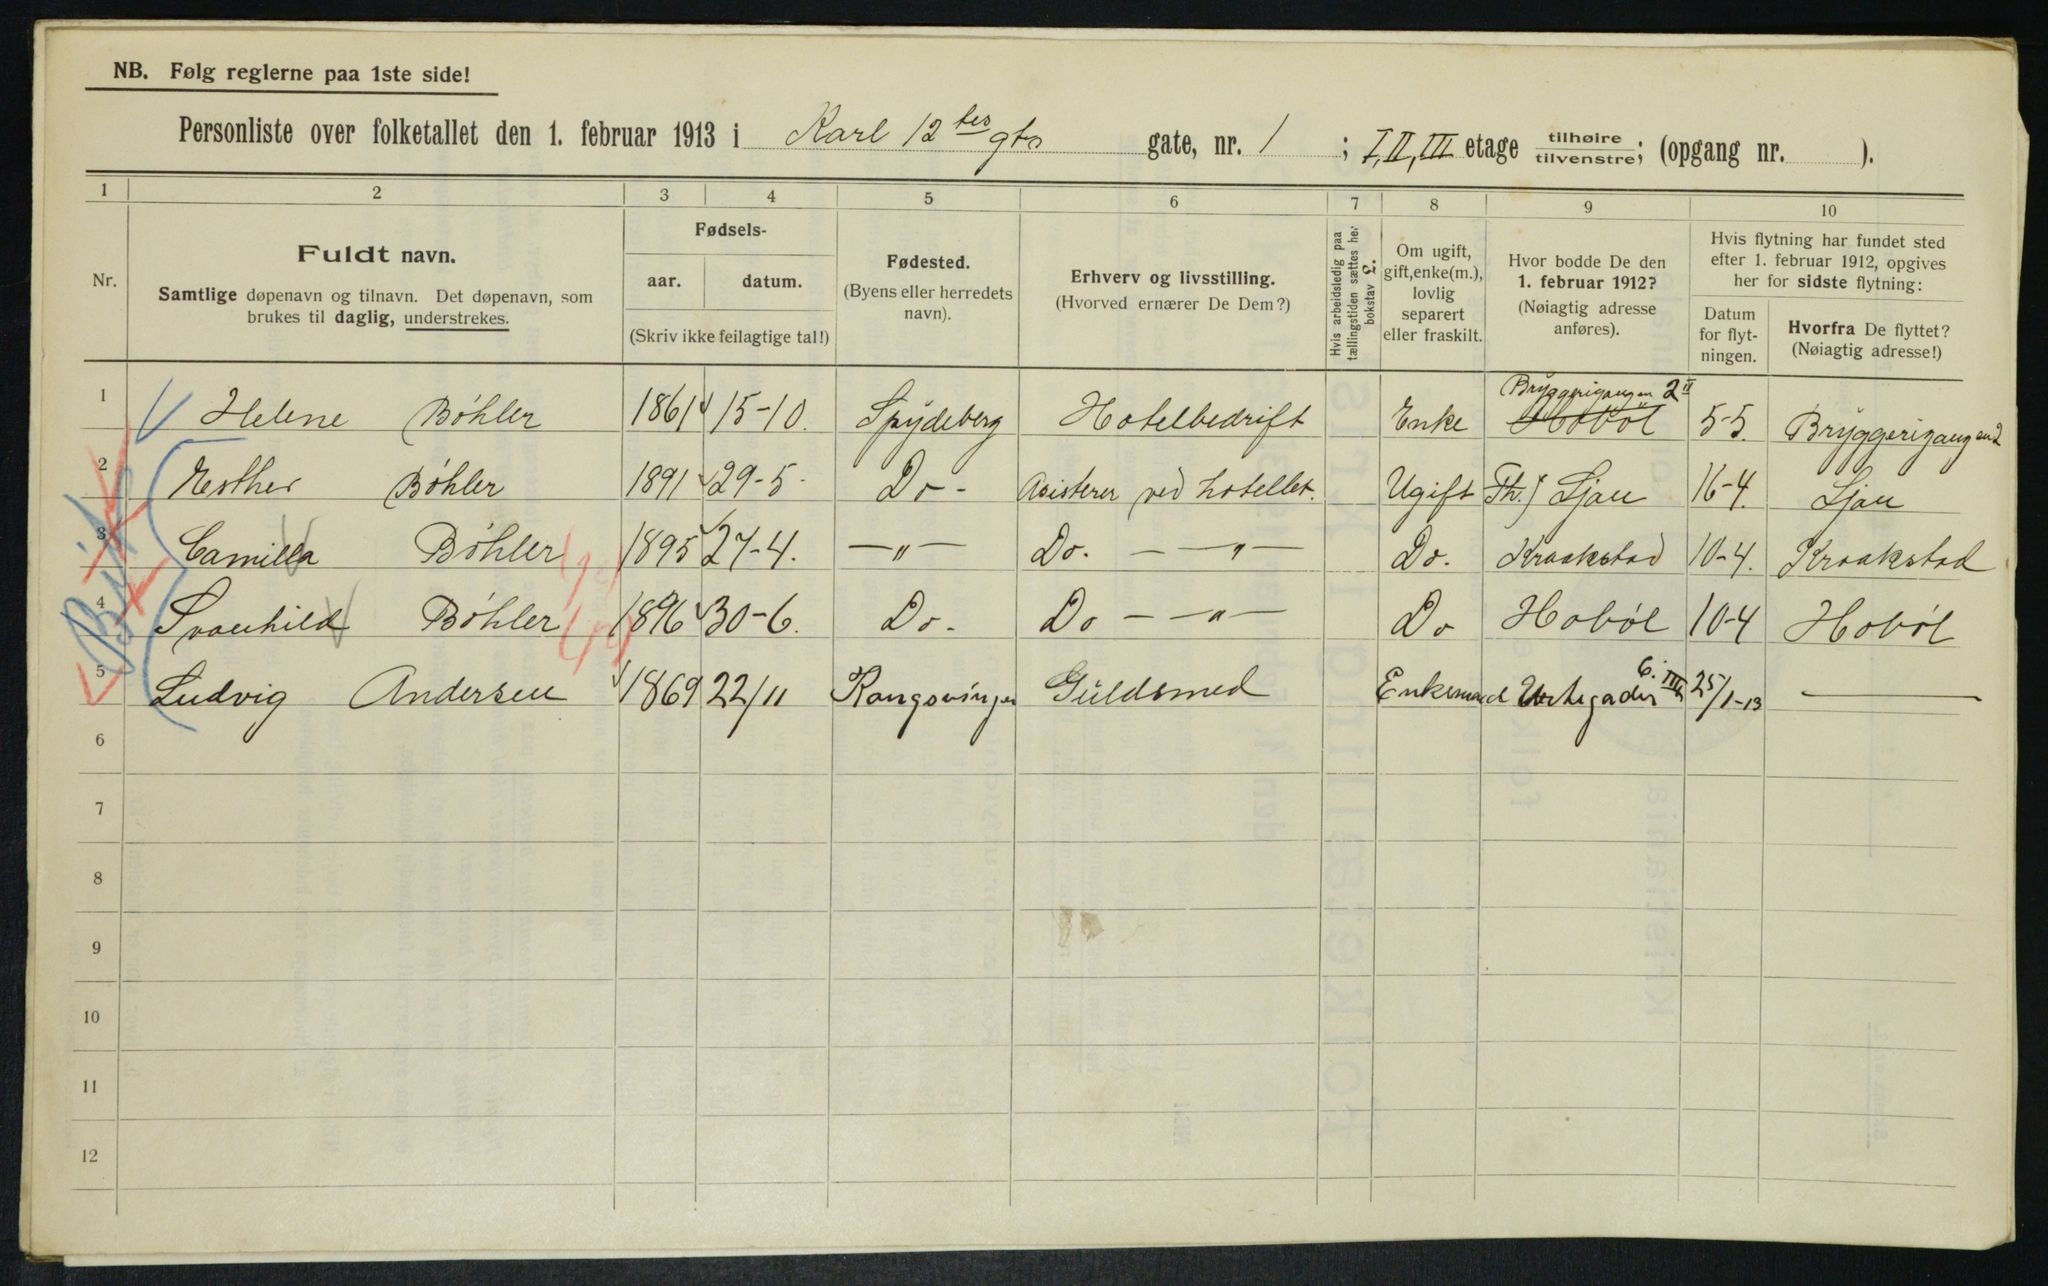 NB. Følg reglerne paa 1ste side!
Personliste over folketallet den 1. februar 1913 i Karl 12 tes gts gate, nr. 1 ; I, II, III etage tilhøire tilvenstre; (opgang nr. ).
1 2 3 4 5 6 7 8 9 10
Nr.
Fuldt navn.
Samtlige døpenavn og tilnavn. Det døpenavn, som
brukes til daglig, understrekes.
Fødsels-
aar. datum.
(Skriv ikke feilagtige tal!)
Fødested.
(Byens eller herredets
navn).
Erhverv og livsstilling.
(Hvorved ernærer De Dem?)
Hvis arbeidsledig paa
tællingstiden sættes her
bokstav L.
Om ugift,
gift, enke(m.),
lovlig
separert
eller fraskilt.
Hvor bodde De den
1. februar 1912?
(Nøiagtig adresse
anføres).
Hvis flytning har fundet sted
efter 1. februar 1912, opgives
her for sidste flytning:
Datum
for flyt-
ningen.
Hvorfra De flyttet?
(Nøiagtig adresse!)
1 Helene Böhler 1861 15-10. Spydeberg Hotelbedrift Enke Bryggerigangen 2 II Hoböl 5-5. Bryggerigangen 2
2 Esther Böhler 1891 29-5. Do - Asisterer ved hotellet. Ugift Th.) Ljan 16-4. Ljan
3 Camilla Böhler 1895 27-4. — „ — Do. — — „ — Do. Kraakstad 10-4. Kraakstad
4 Svanhild Böhler 1896 30-6. Do. Do — — „ — Do Hoböl 10-4 Hoböl
5 Ludvig Andersen 1869 22/11 Kongsvinger Guldsmed Enkemand 6. III 25/1-13 —
6
7
8
9
10
11
12